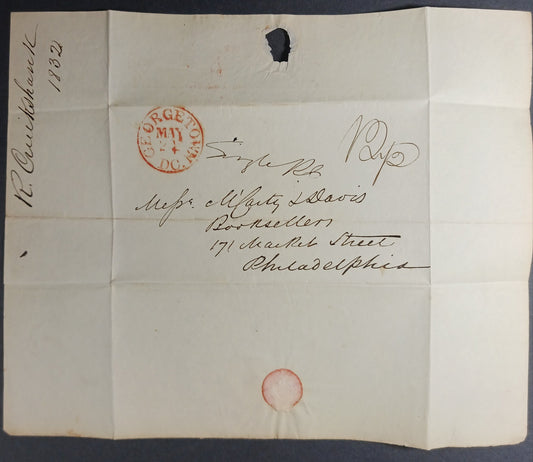 R. Cruikshank
1832
GEORGETOWN
MAY
24
D.C.
Single
12½
Messr. M'Carty & Davis
Booksellers
171 Market Street
Philadelphia